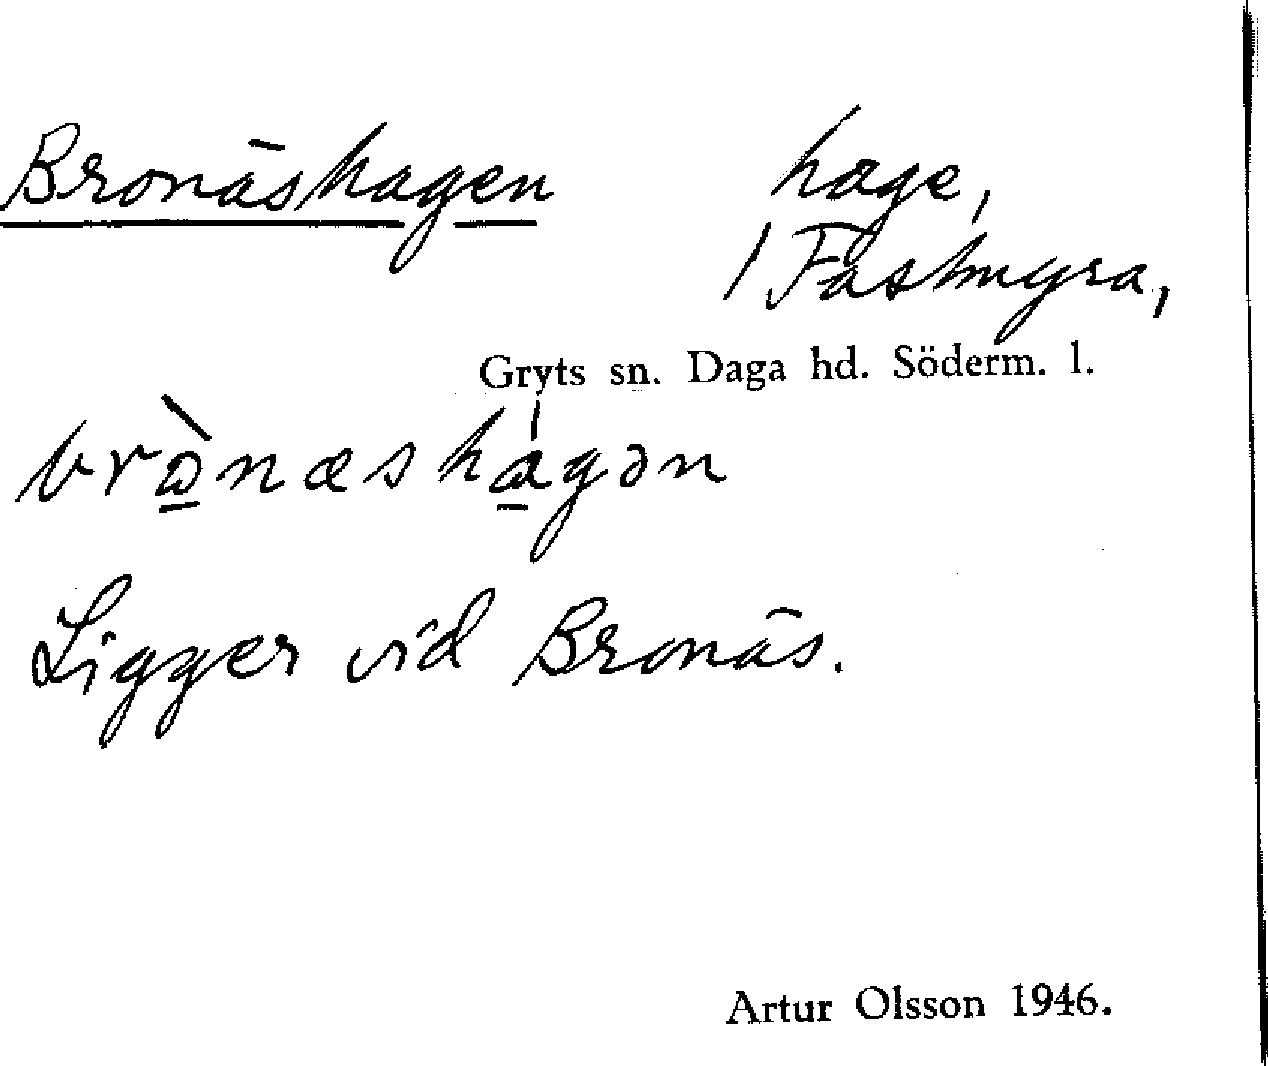 Bronäshagen hage,
1 Fastmyra,
Gryts sn. Daga hd. Söderm. l.
Ligger vid Bronäs.
Artur Olsson 1946.